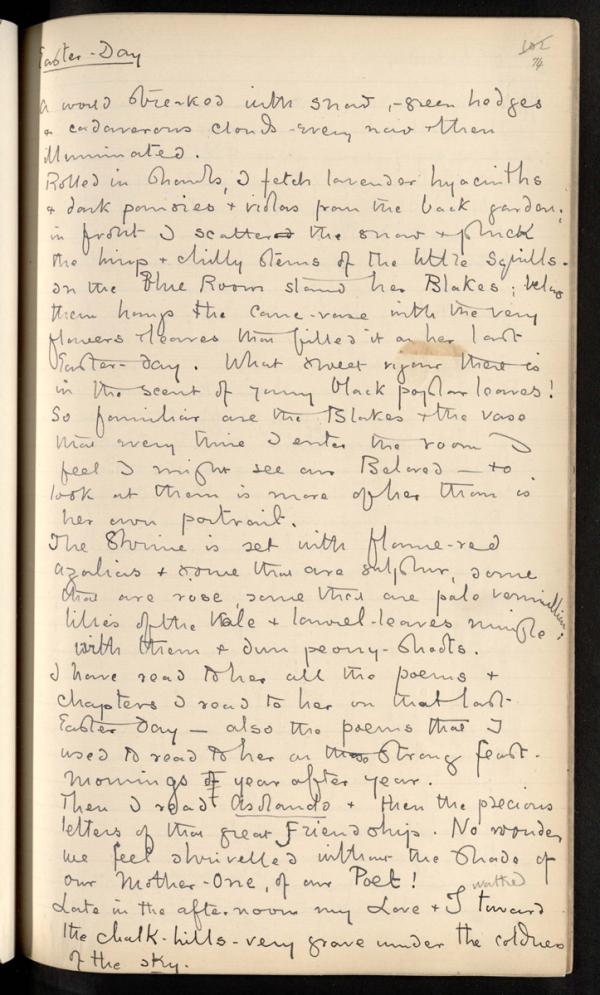 Easter-Day
74
A world streaked with snow, - green hedges
& cadaverous clouds - every now & then
illuminated.
Rolled in shawls, I fetch lavender hyacinths
& dark pansies & violas from the back garden;
in front I scatter the snow & pluck
the limp & chilly stems of the little squills.
In the Blue Room stand her Blakes; below
them hangs the cane-vase with the very
flowers & leaves that filled it on her last
Easter-day. What sweet vigour there is
in the scent of young black poplar leaves!
So familiar are the Blakes & the vase
that every time I enter the room I
feel I might see our Beloved — to
look at them is more of her than is
her own portrait.
The Shrine is set with flame-red
azaleas & some that are sulphur, some
that are rose, some that are pale vermillion;
lilies of the Vale & laurel-leaves mingle
with them & dun peony-shoots.
I have read to her all the poems &
chapters I read to her on that last
Easter Day — also the poems that I
used to read to her on those strong feast-
mornings of year after year.
Then I read Asolando & then the precious
letters of that great Friendship. No wonder
we feel shrivelled without the shade of
our Mother-One, of our Poet!
walked
Late in the afternoon my Love & I toward
the chalk-hills - very grave under the coldness
of the sky.